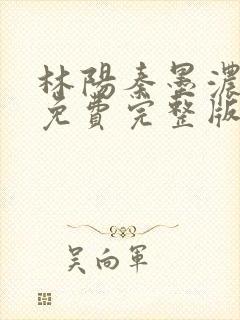 林陽秦墨濃
免費完整版
吳向軍